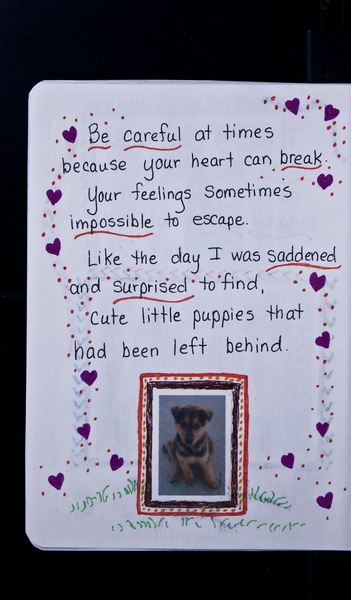 Be careful at times
because your heart can break.
Your feelings sometimes
impossible to escape.
Like the day I was saddened
and surprised to find,
cute little puppies that
had been left behind.